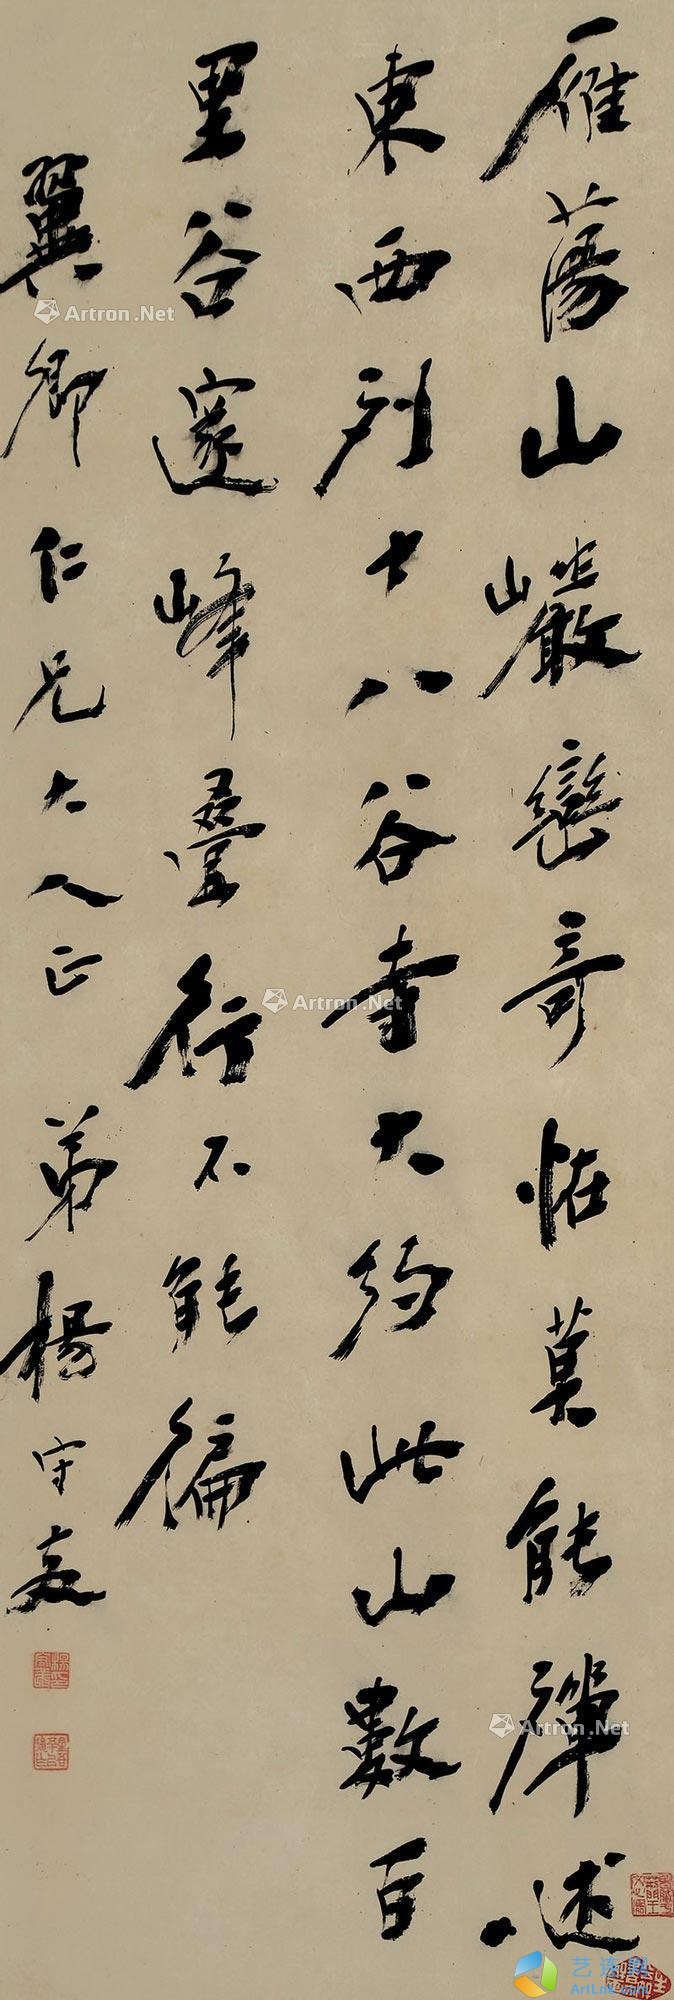 雁蕩山巖巒奇怪莫能殫述
東西列十八谷寺大約此山數百
里谷邃峰疊行不能徧
翼卿仁兄大人正 弟楊守敬
Artron.Net
Artron.Net
Artron.Net